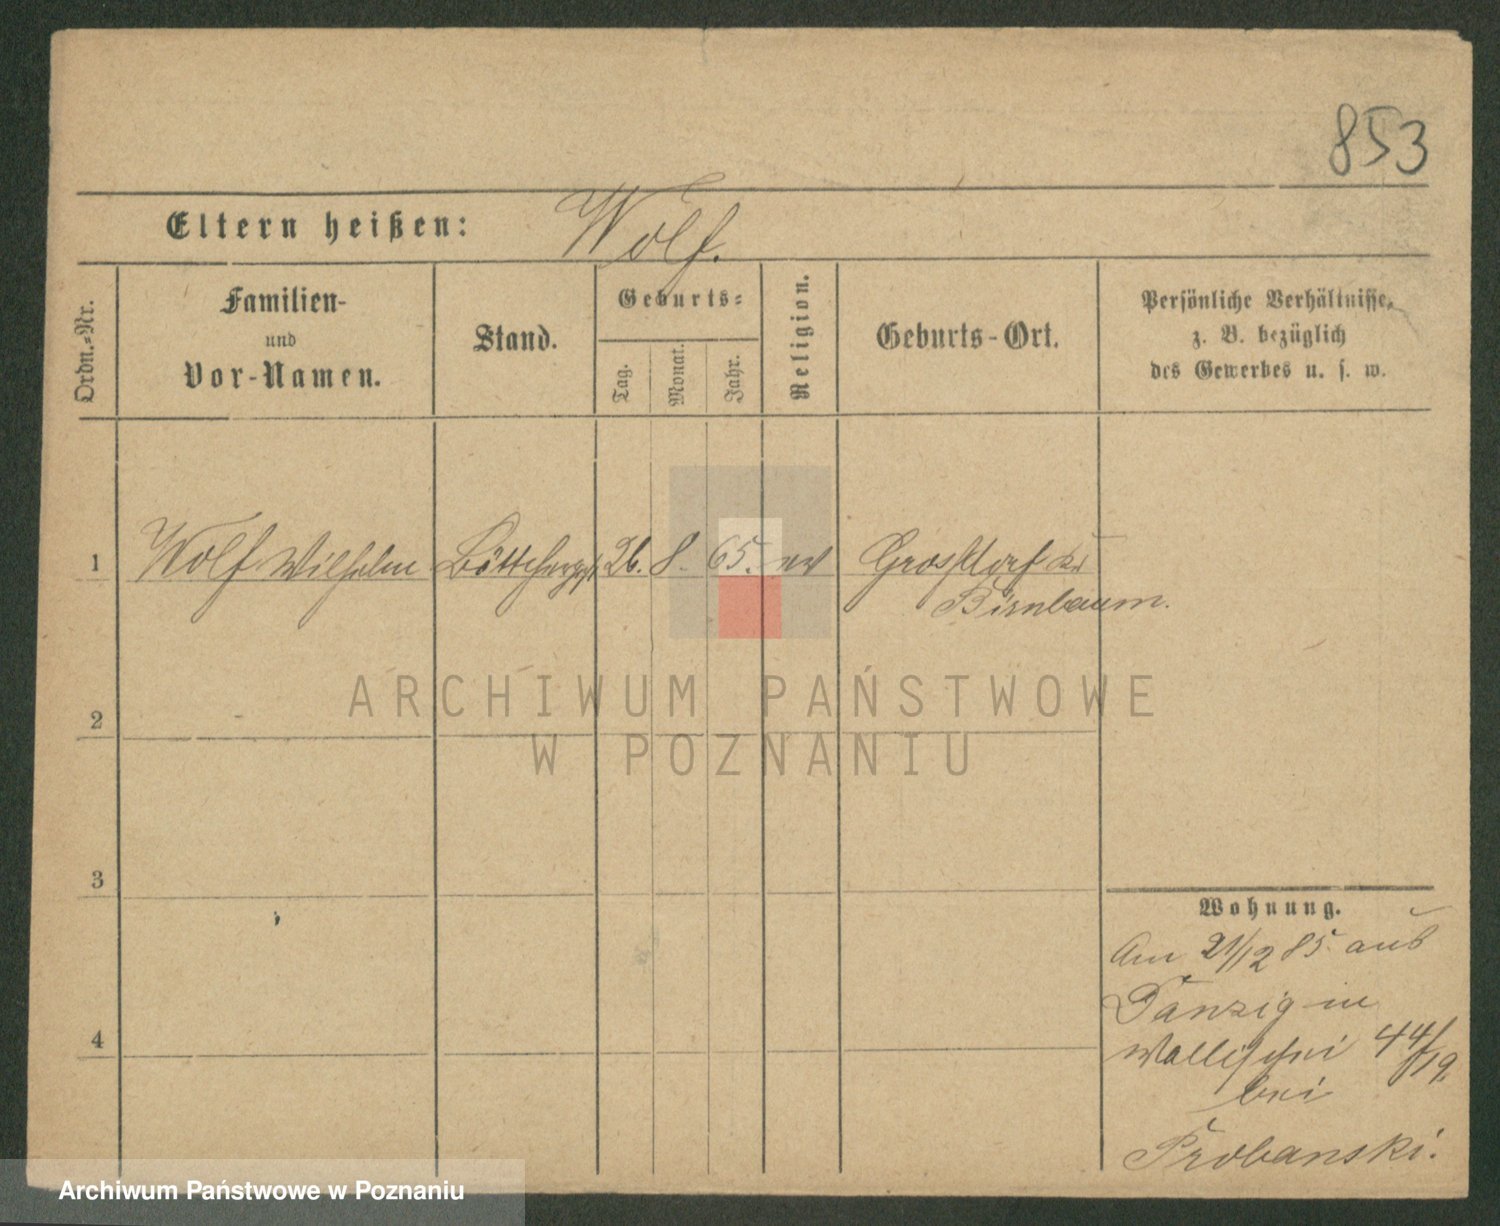 853
Eltern heißen: Wolf.
Ordn.-Nr.
Familien-
und
Vor-Namen.
Stand.
Geburts-
Tag.
Monat.
Jahr.
Religion.
Geburts-Ort.
Persönliche Verhältnisse,
z. B. bezüglich
des Gewerbes u. s. w.
1 Wolf Wilhelm Böttcherges. 26. 8. 65. ev Grossdorf Kr
Birnbaum.
ARCHIWUM PAŃSTWOWE
W POZNANIU
2
3
4
Wohnung.
Am 21/12 85 aus
Danzig in
Wallischei 44/19.
bei
Probanski.
Archiwum Państwowe w Poznaniu